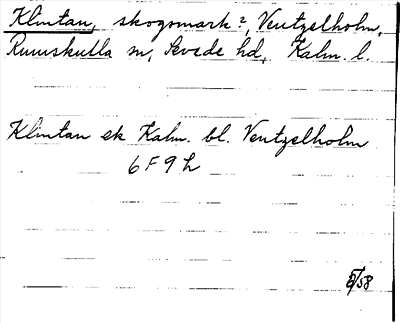 Klintan, skogsmark?, Ventzelholm,
Rumskulla sn, Sevede hd, Kalm. l.
Klintan ek Kalm. bl. Ventzelholm
6 F 9 h
8/58